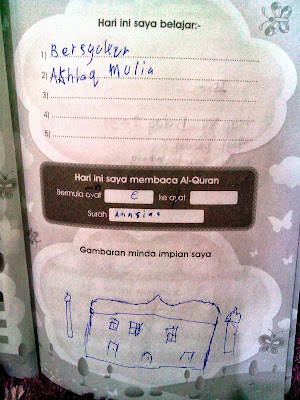 Hari ini saya belajar:-
1) Bersyukur
2) Akhlaq Mulia
3)
4)
5)
Hari ini saya membaca Al-Quran
Bermula ayat ke ayat
Surah Annsina
Gambaran minda impian saya